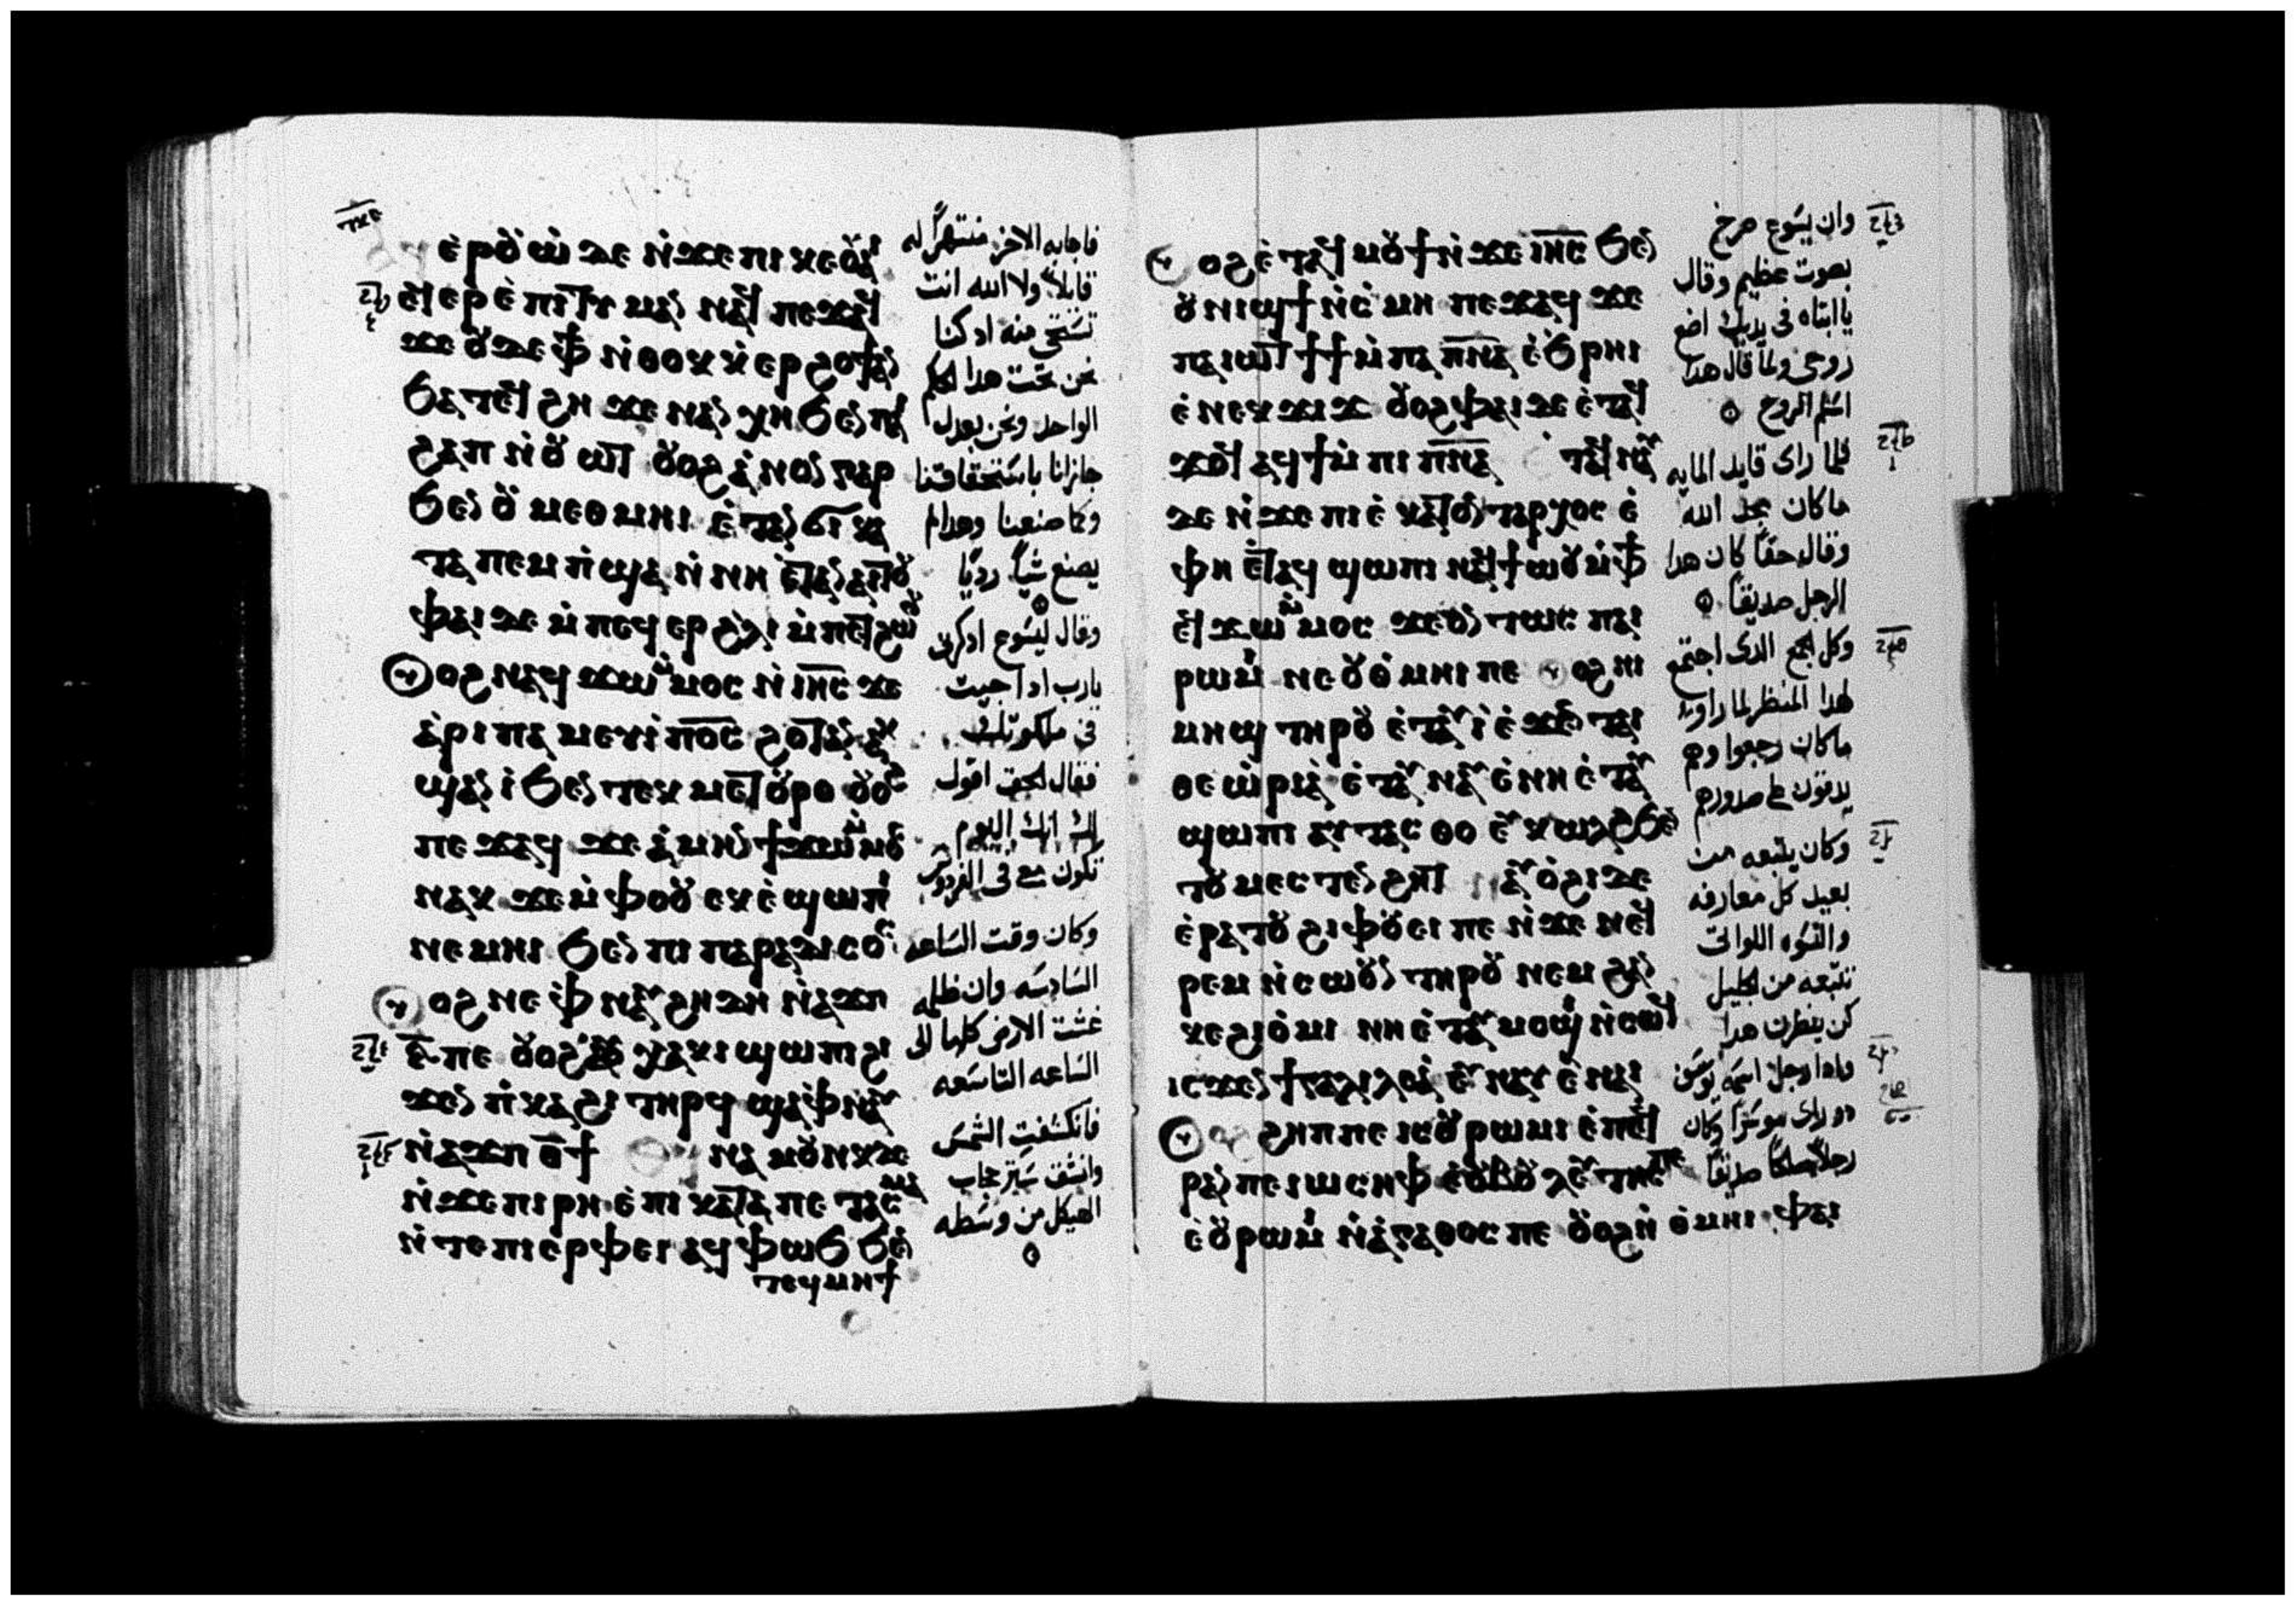 ⲉⲣⲟⲩⲱ ⲇⲉ ⲛϫⲉ ⲡⲓⲕⲉⲟⲩⲁⲓ
ⲉϥⲉⲣⲉⲡⲓⲧⲓⲙⲁⲛ ⲛⲁϥ ⲡⲉϫⲁϥ
ϫⲉ ⲟⲩⲇⲉ ⲫϯ ⲛⲑⲟⲕ ⲕⲉⲣϩⲟϯ ⲁⲛ
ϧⲁⲧⲉϥϩⲏ ϫⲉ ⲛⲁⲛⲭⲏ ϧⲉⲛ ⲡⲁⲓ
ϩⲁⲡ ⲛⲟⲩⲱⲧ ⲟⲩⲟϩ ⲁⲛⲟⲛ ⲅⲁⲣ
ϧⲉⲛ ⲟⲩⲙⲉⲑⲙⲏⲓ ⲉⲧⲁⲛϭⲓ ⲕⲁ
ⲧⲁ ⲡⲉⲙⲡϣⲁ ⲛⲛⲏ ⲉⲧⲁⲛⲁⲓⲧⲟⲩ
ⲫⲁⲓ ⲇⲉ ⲙⲡⲉϥⲉⲣ ϩⲗⲓ ⲙⲡⲉⲧϩⲱⲟⲩ
ⲟⲩⲟϩ ⲛⲁϥϫⲱ ⲙⲙⲟⲥ ⲛⲓⲏⲥ ϫⲉ
ⲁⲣⲓⲡⲁⲙⲉⲩⲓ ⲡⲟⲥ ϩⲟⲧⲁⲛ ⲁⲕ
ϣⲁⲛⲓ ϧⲉⲛ ⲧⲉⲕⲙⲉⲧⲟⲩⲣⲟ ⲟⲩⲟϩ
ⲡⲉϫⲁϥ ϫⲉ ⲁⲙⲏⲛ ϯϫⲱ ⲙⲙⲟⲥ
ⲛⲁⲕ ϫⲉ ⲙⲫⲟⲟⲩ ⲉⲕⲉϣⲱⲡⲓ
ⲛⲉⲙⲏⲓ ϧⲉⲛ ⲡⲓⲡⲁⲣⲁⲇⲓⲥⲟⲥ
ⲟⲩⲟϩ ⲛⲉ ⲫⲛⲁⲩ ϩⲏⲇⲏ ⲛⲁϫⲡ
ⲋ ⲡⲉ ⲟⲩⲟϩ ⲟⲩⲭⲁⲕⲓ ϣⲱⲡⲓ ϩⲓ
ϫⲉⲛ ⲡⲕⲁϩⲓ ⲧⲏⲣϥ ϣⲁ ⲫⲛⲁⲩ
ⲛⲁϫⲡ ⲑϯ ⲛⲁϥⲙⲟⲩⲛⲕ ⲇⲉ
ⲛϫⲉ ⲡⲓⲣⲏ ⲉ ⲡⲓⲕⲁⲧⲁⲡⲉⲧⲁⲥⲙⲁ
ⲛⲧⲉ ⲡⲓⲉⲣⲫⲉⲓ ⲁϥⲫⲱϧ ϧⲉⲛ
ⲧⲉϥⲙⲏϯ
فاجابه الاخر منتهراً له
قايلاً ولا الله انت
تستحى منه اد كنا
نحن تحت هدا الحكم
الواحد ونحن بعدل
جازانا باستحقاقنا
وكما صنعنا وهدا لم
يصنع شياً رديًا
وقال ليسوع ادكرنى
يارب ادا جيت
فى ملكوتك
فقال الحق اقول
لك انك اليوم
تكون معى فى الفردوس
وكان وقت الساعه
السادسه وان ظلمه
غشت الارض كلها الى
الساعه التاسعه
فانكسفت الشمس
وانشق ستر حجاب
الهيكل من وسطه
ⲟⲩⲟϩ ⲉⲧⲁϥⲙⲟⲩϯ ⲛϫⲉ ⲓⲏⲥ ϧⲉⲛ
ⲟⲩⲛⲓϣϯ ⲛⲥⲙⲏ ⲡⲉϫⲁϥ ϫⲉ
ⲡⲁⲓⲱⲧ ϯϯ ⲙⲡⲁⲡⲛⲁ ⲉϧⲣⲏⲓ
ⲉⲛⲉⲕϫⲓϫ ⲟⲩⲟϩ ⲫⲁⲓ ⲇⲉ ⲉⲧⲁϥ
ϫⲟϥ ⲁϥϯ ⲙⲡⲓⲡⲛⲁ ⲉⲧⲁϥⲛⲁⲩ
ⲇⲉ ⲛϫⲉ ⲡⲓⲉⲕⲁⲧⲟⲛⲧⲁⲣⲭⲟⲥ ⲉ
ⲫⲏ ⲉⲧⲁϥϣⲱⲡⲓ ⲛⲁϥϯⲱⲟⲩ ⲙⲫϯ
ⲉϥϫⲱ ⲙⲙⲟⲥ ϫⲉ ⲟⲛⲧⲱⲥ ⲡⲁⲓ
ⲣⲱⲙⲓ ⲛⲉ ⲟⲩⲑⲙⲏⲓ ⲡⲉ ⲟⲩⲟϩ ⲛⲓ
ⲙⲏϣ ⲧⲏⲣⲟⲩ ⲉⲧⲁⲩⲓ ⲉϫⲉⲛ ⲧⲁⲓ
ⲑⲉⲱⲣⲓⲁ ⲉⲧⲁⲩⲛⲁⲩ ⲉⲛⲏ ⲉⲧⲁⲩ
ϣⲱⲡⲓ ⲁⲩⲧⲁⲥⲑⲟ ⲉⲩⲕⲱⲗϩ ϧⲉⲛ
ⲧⲟⲩⲙⲉⲥⲧⲉⲛϩⲏⲧ ⲛⲁⲩⲟϩⲓ ⲇⲉ
ⲉⲣⲁⲧⲟⲩ ϩⲓⲫⲟⲩⲉⲓ ⲡⲉ ⲛϫⲉ ⲛⲉϥ
ⲣⲉⲙⲛⲥⲱⲟⲩⲛ ⲧⲏⲣⲟⲩ ⲛⲉⲙ ϩⲁⲛ
ⲕⲉϩⲓⲟⲙⲓ ⲛⲏ ⲉⲧⲁⲩⲙⲟϣⲓ ⲛⲥⲱϥ
ⲓⲥϫⲉⲛ ϯⲅⲁⲗⲓⲗⲉⲁ ⲉⲩⲛⲁⲩ ⲉⲛⲁⲓ
ⲟⲩⲟϩ ϩⲏⲡⲡⲉ ⲓⲥ ⲟⲩⲣⲱⲙⲓ ⲉⲡⲉϥ
ⲣⲁⲛ ⲡⲉ ⲓⲱⲥⲏⲫ ⲉⲟⲩⲃⲟⲩⲗⲉⲩⲧⲏⲥ ⲡⲉ
ⲉⲟⲩⲣⲱⲙⲓ ⲛⲁⲅⲁⲑⲟⲥ ⲡⲉ ⲟⲩⲟϩ ⲛⲑⲙⲏⲓ ⲫⲁⲓ
وان يسوع صرخ
بصوت عظيم وقال
يا ابتاه فى يديك اضع
روحى ولما قال هدا
اسلم الروح
فلما راى قايد المايه
ما كان مجد الله
وقال حقاً كان هدا
الرجل صديقاً
وكل الجمع الدى اجتمع
لهدا المنظر لما راوا
ما كان رجعوا وهم
يدقون على صدورهم
وكان يتبعه من
بعيد كل معارفه
والنسوه اللواتى
تتبعه من الجليل
كن ينظرن هدا
وادا رجل اسمه يوسف
دو راى موسراً وكان
رجلاً صالحاً صديقاً